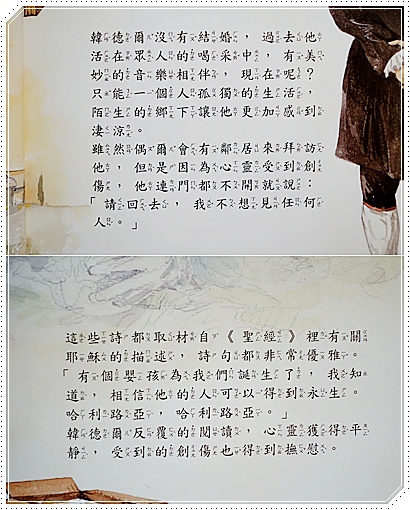 韓德爾沒有結婚，過去他
活在眾人的喝采中，有美
妙的音樂相伴，現在呢？
只能一個人孤獨的生活，
陌生的鄉下讓他更加感到
淒涼。
雖然偶爾會有鄰居來拜訪
他，但是因為心靈受到創
傷，他連門都不開就說：
「請回去，我不想見任何
人。」
這些詩都取材自《聖經》裡有關
耶穌的描述，詩句都非常優雅。
「有個嬰孩為我們誕生了，我知
道，相信他的人可以得到永生。
哈利路亞，哈利路亞。」
韓德爾反覆的閱讀，心靈獲得平
靜，受到的創傷也得到撫慰。